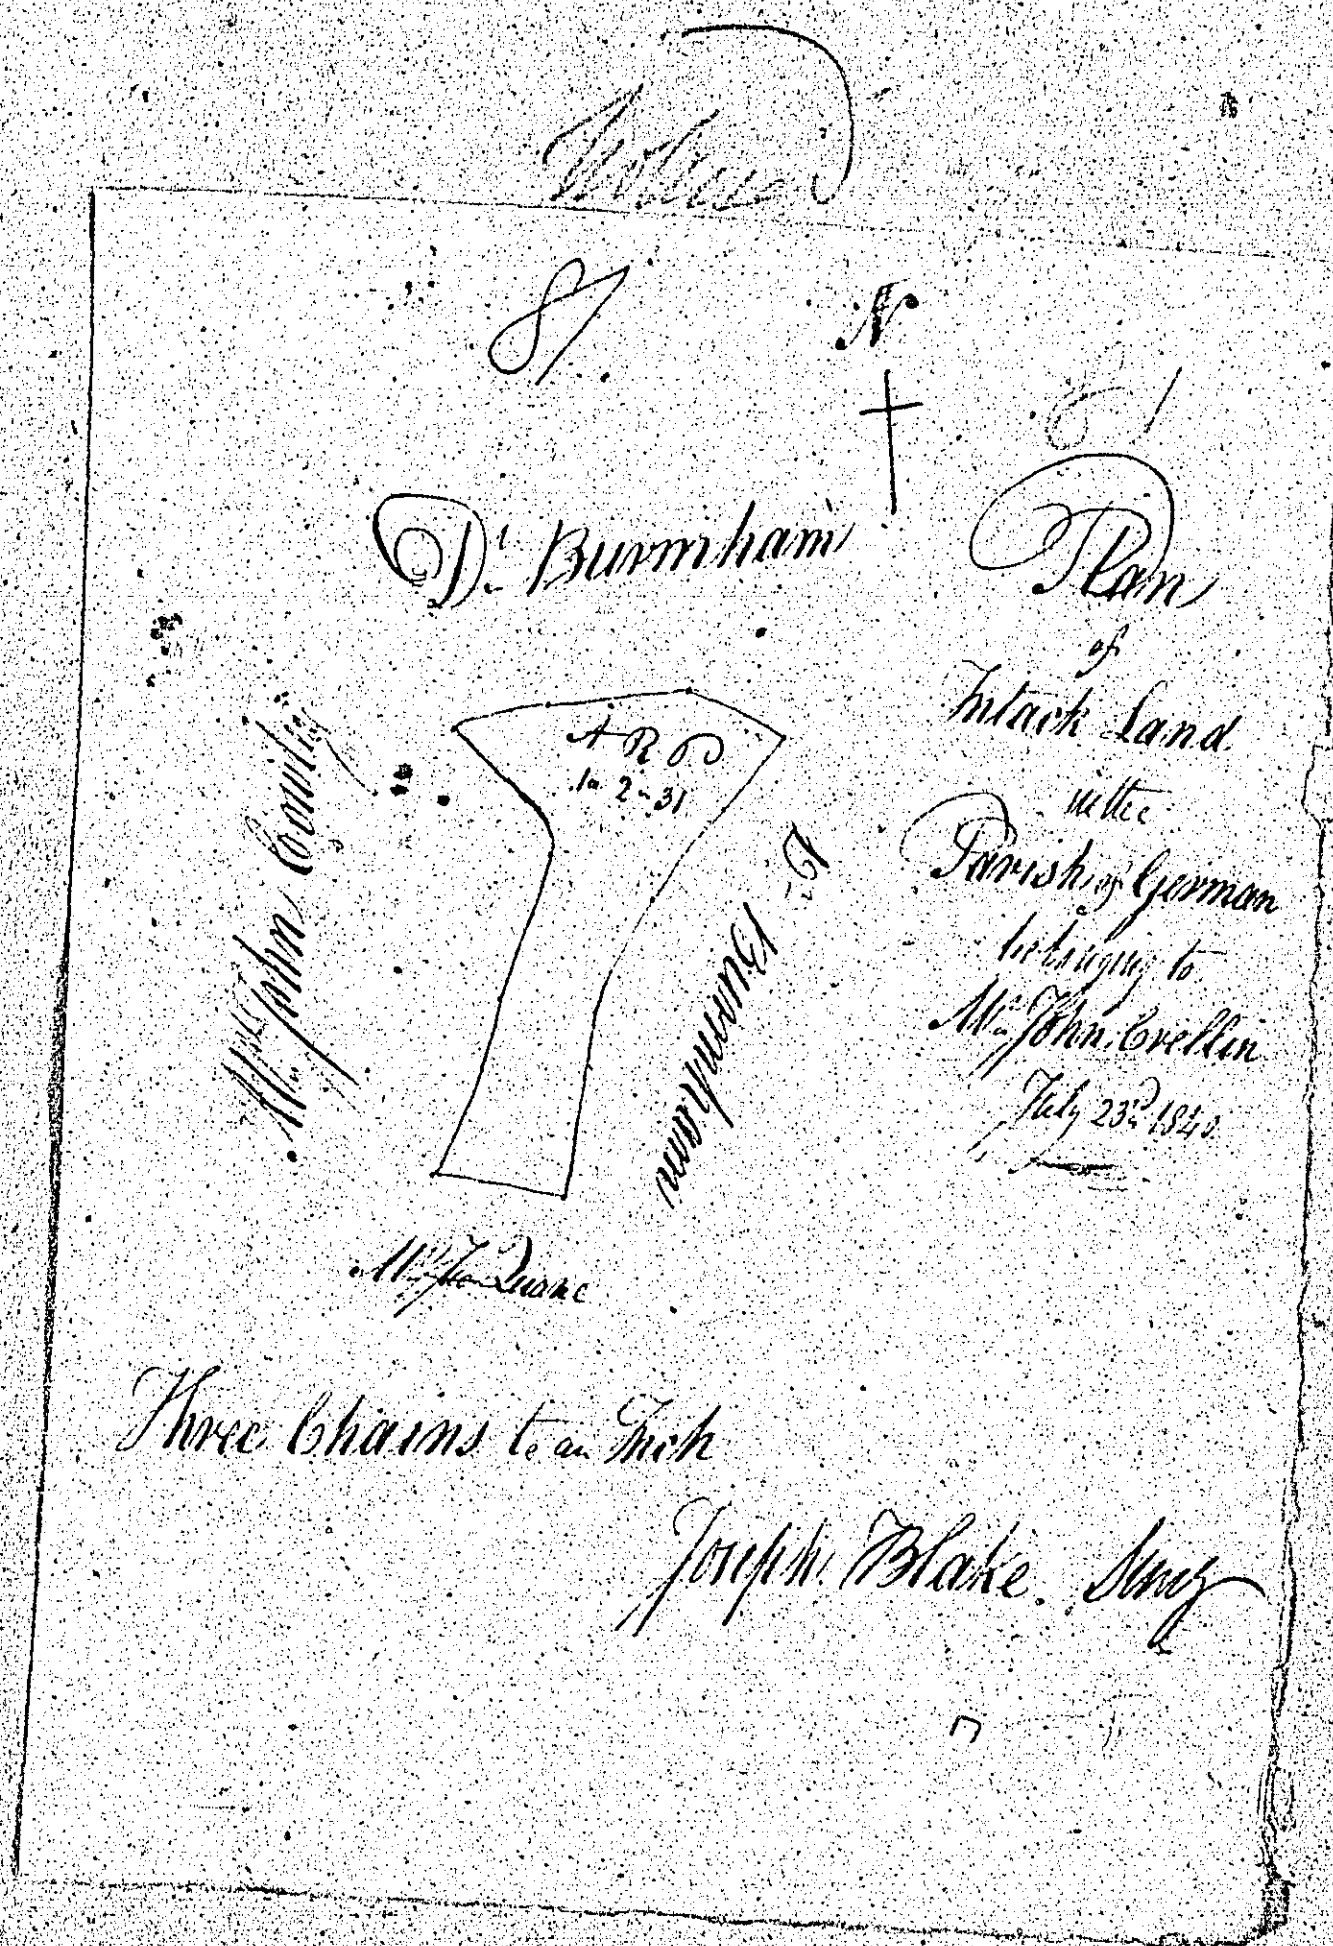 87
N
Dr. Burmham
Plan
of
Intack Land
in the
Parish of German
belonging to
Mr. John Crellin
July 23rd 1840
A R P
1 " 2 " 31
Mr. John Cowley
Dr. Burmham
Mr. Quane
Three Chains to an Inch
Joseph Blake. Survy